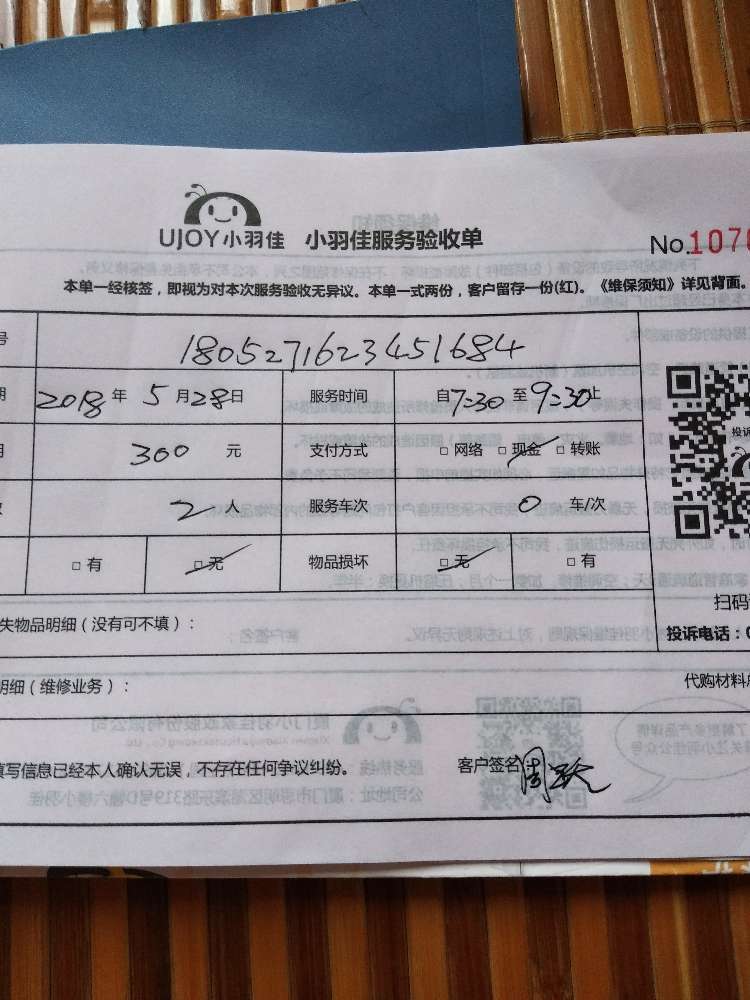 UJOY小羽佳 小羽佳服务验收单
No.1070
本单一经核签，即视为对本次服务验收无异议。本单一式两份，客户留存一份(红)。《维保须知》详见背面。
号 1805271623451684
期 2018年5月28日 服务时间 自7:30至9:30止
用 300元 支付方式 □网络 □现金 □转账
数 2人 服务车次 0车/次
□有 □无 物品损坏 □无 □有
投诉
扫码
失物品明细（没有可不填）：
投诉电话：0
明细（维修业务）：
代购材料
填写信息已经本人确认无误，不存在任何争议纠纷。 客户签名